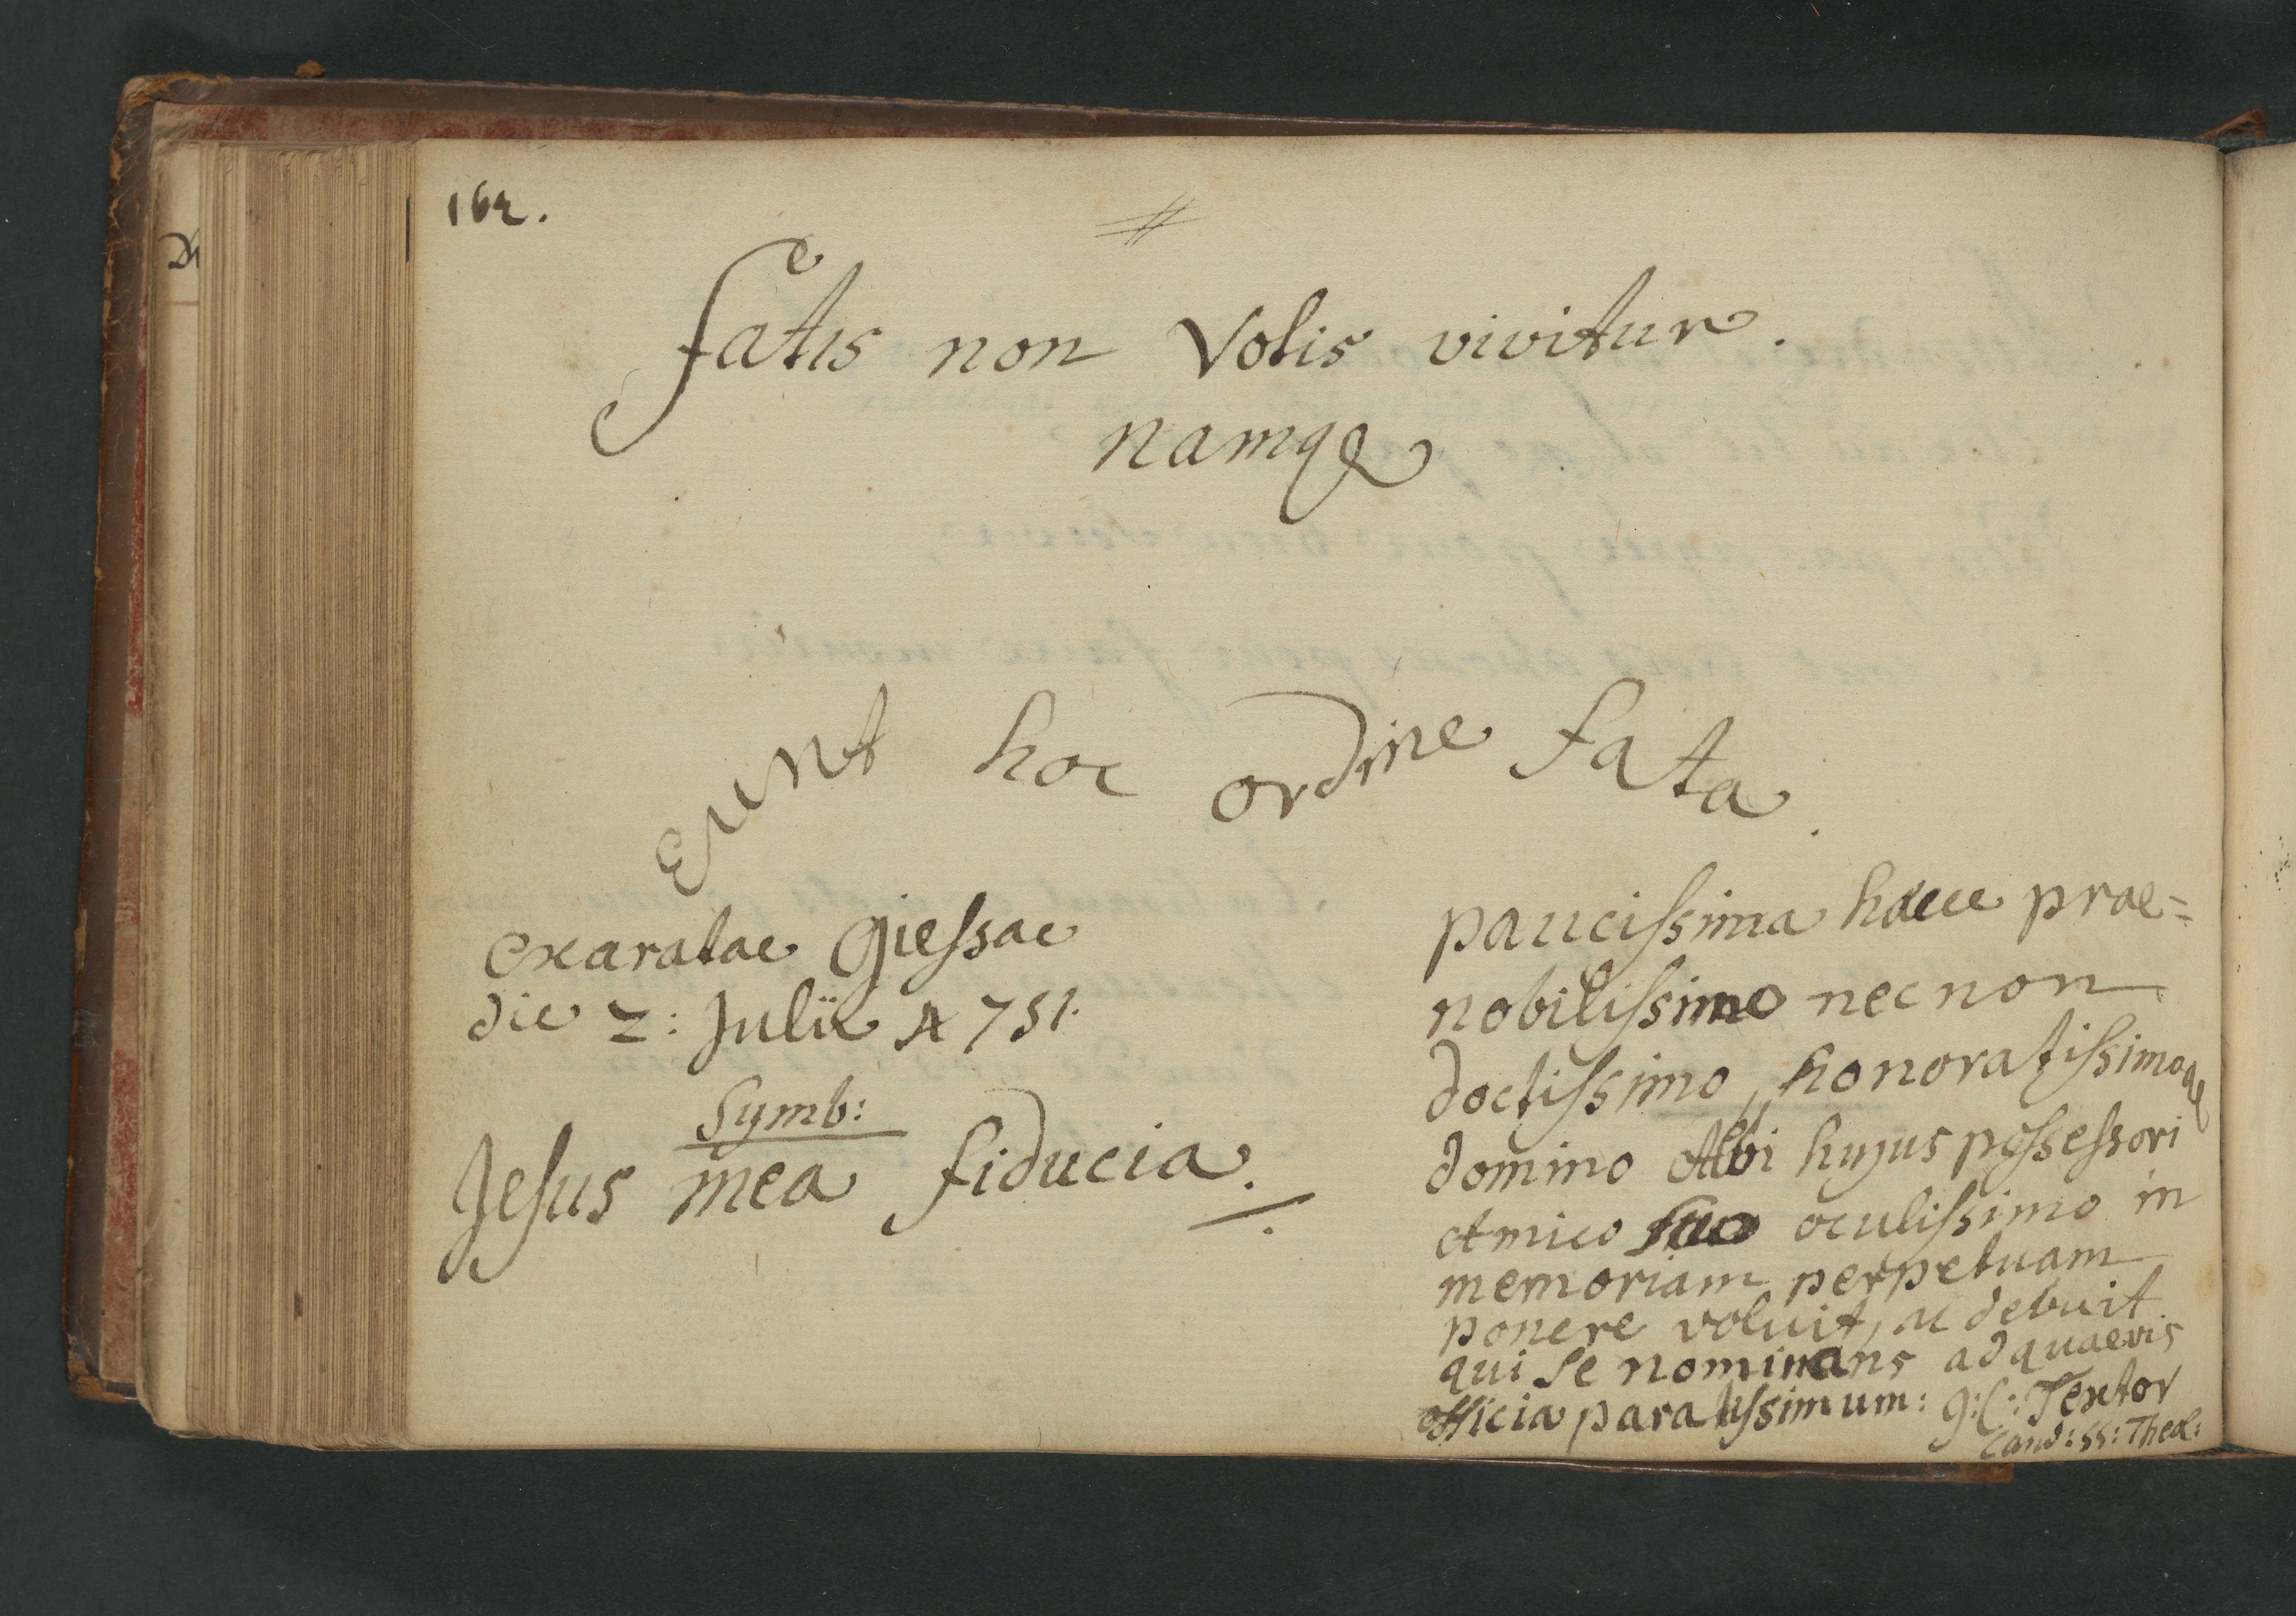 162.
Fatis non Votis vivitur.
namqꝫ
eunt hoc ordine fata.
exaratae Giessae
die 2: Julii A 751.
Symb:
Jesus mea fiducia.
paucissima haece prae=
nobilissimo necnon
doctissimo, honoratissimoqꝫ
domino Albi hujus possessori
Amico suo oculissimo in
memoriam perpetuam
ponere voluit, ac debuit
qui se nominans ad quaevis
officia paratissimum: J: C: Textor
Cand: SS: Theol: